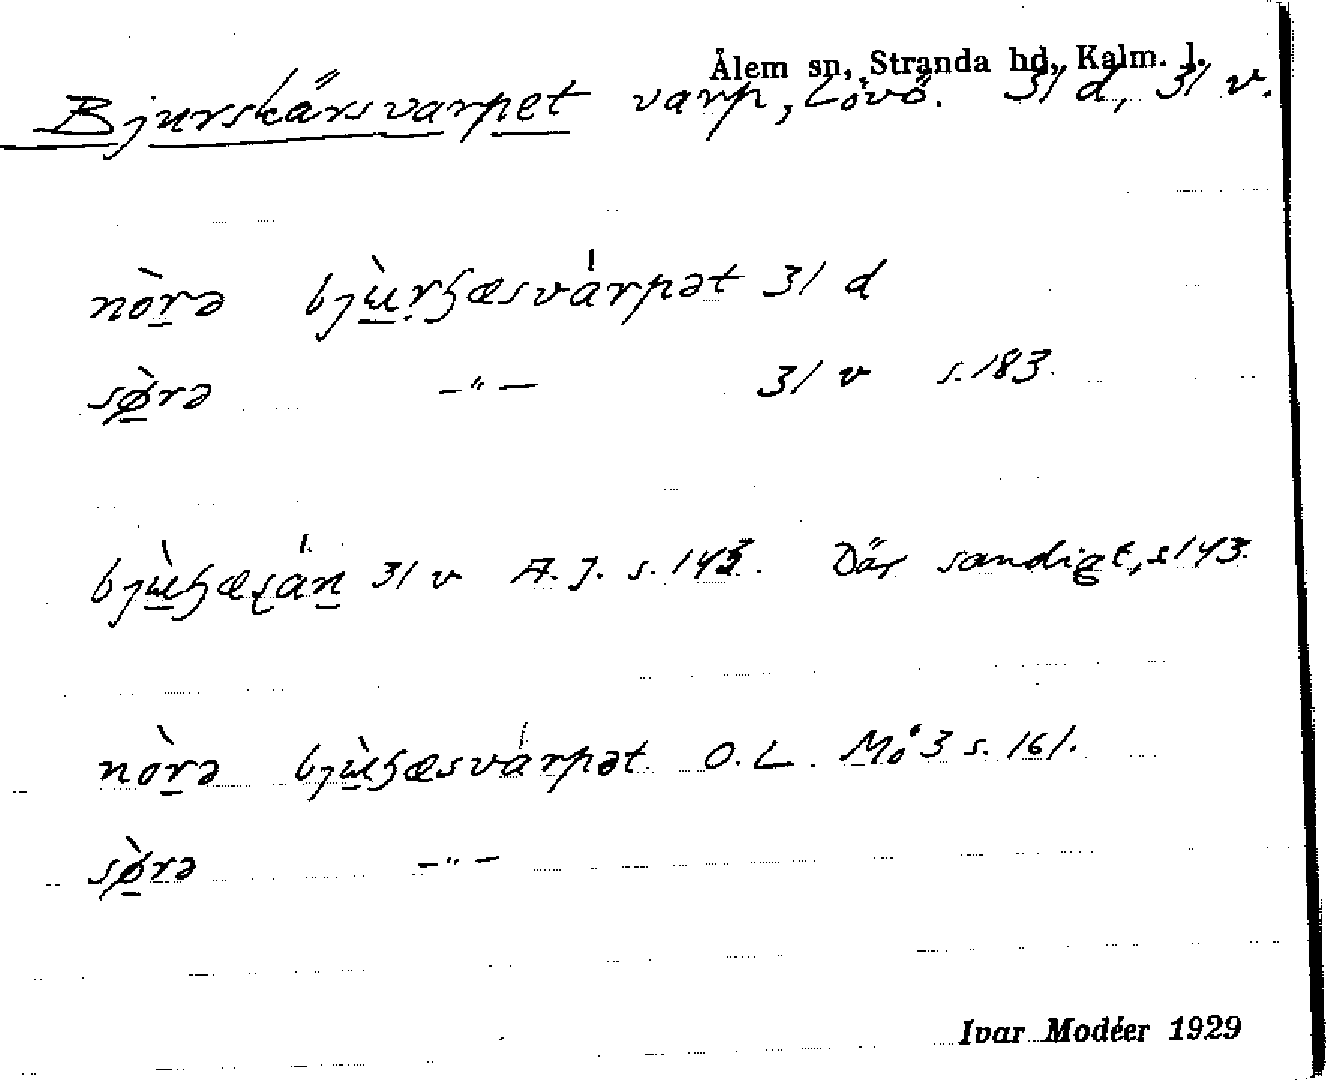 Ålem sn, Stranda hd, Kalm. l.
Bjurskärsvarpet varp, Lövö. 31 d, 31 v.
nòrə bjùrʂæsvárpət 31 d
sø̀rə –"– 31 v s. 183.
bjùʂæʂán 31 v A. J. s. 143. Där sandigt, s 143.
nòrə bjùʂæsvárpət O. L. Mö 3 s. 161.
sø̀rə –"–
Ivar Modéer 1929